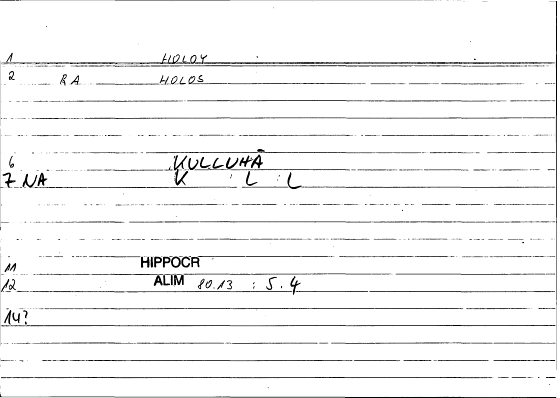 1 HOLOY
2 RA HOLOS
6 KULLUHĀ
7 NA K : L : L
11 HIPPOCR
12 ALIM 80.13 : 5.4
14?